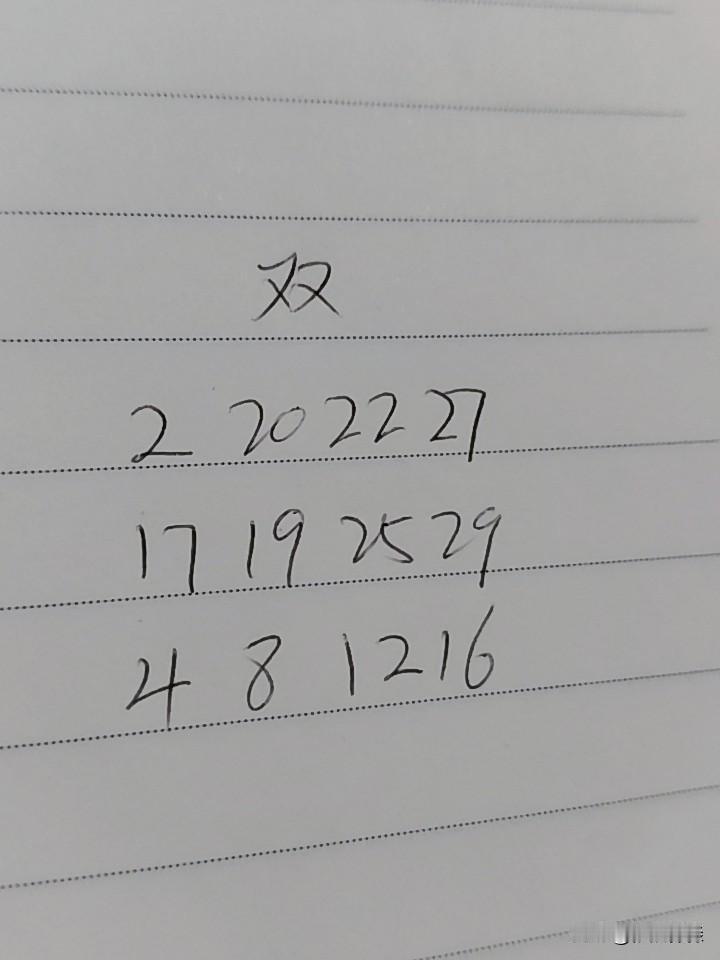 双
2 20 22 27
17 19 25 29
4 8 12 16